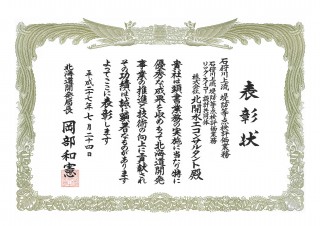 表彰状
石狩川上流 堤防等点検評価業務
石狩川上流 堤防等点検評価業務
株式会社 北開水工コンサルタント殿
貴社は頭書業務の実施に当たり特に
優秀な成果を収めもって北海道開発
事業の推進と技術の向上に貢献され
その功績は誠に顕著なものがあります
よってここに表彰します
平成二十七年七月二十四日
北海道開発局長 岡部和憲